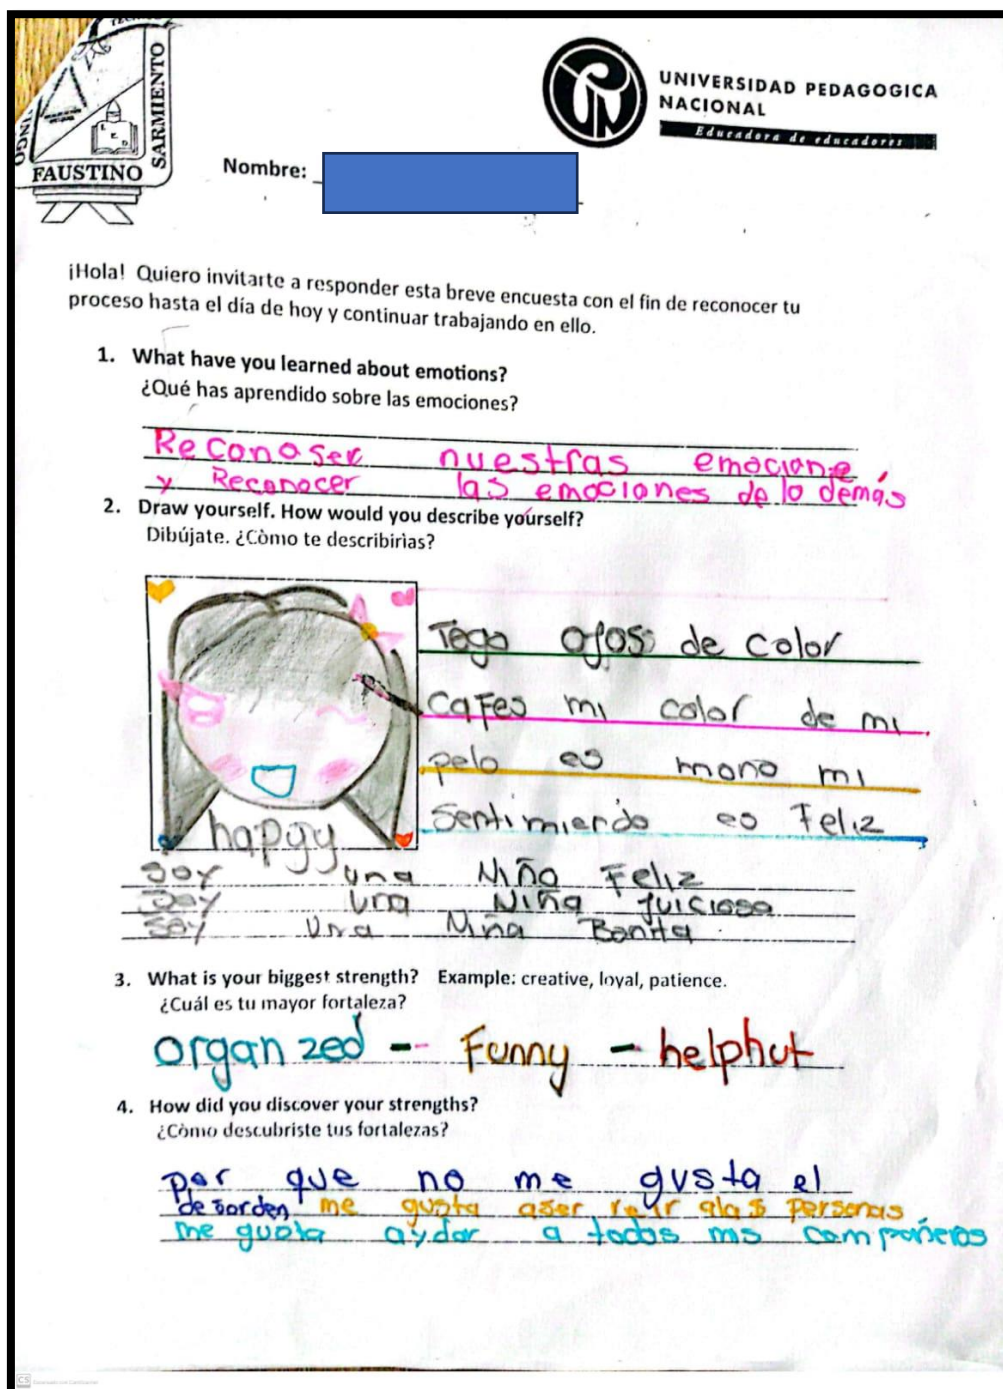 SARMIENTO
FAUSTINO
UNIVERSIDAD PEDAGOGICA
NACIONAL
Educadora de educadores
Nombre:
¡Hola! Quiero invitarte a responder esta breve encuesta con el fin de reconocer tu
proceso hasta el día de hoy y continuar trabajando en ello.
1. What have you learned about emotions?
¿Qué has aprendido sobre las emociones?
Reconoser nuestras emocione
y Reconocer las emociones de lo demás
2. Draw yourself. How would you describe yourself?
Dibújate. ¿Còmo te describirìas?
Tego ojos de color
cafes mi color de mi
pelo es mono mi
Sentimiendo es Feliz
happy
Soy una Niña Feliz
Soy una Niña Juiciosa
Soy Una Niña Bonita
3. What is your biggest strength? Example: creative, loyal, patience.
¿Cuál es tu mayor fortaleza?
organ zed -- Funny - helphut
4. How did you discover your strengths?
¿Còmo descubriste tus fortalezas?
por que no me gusta el
desorden me gusta aser reir a las personas
me gusta aydar a todos mis compañeros
CS